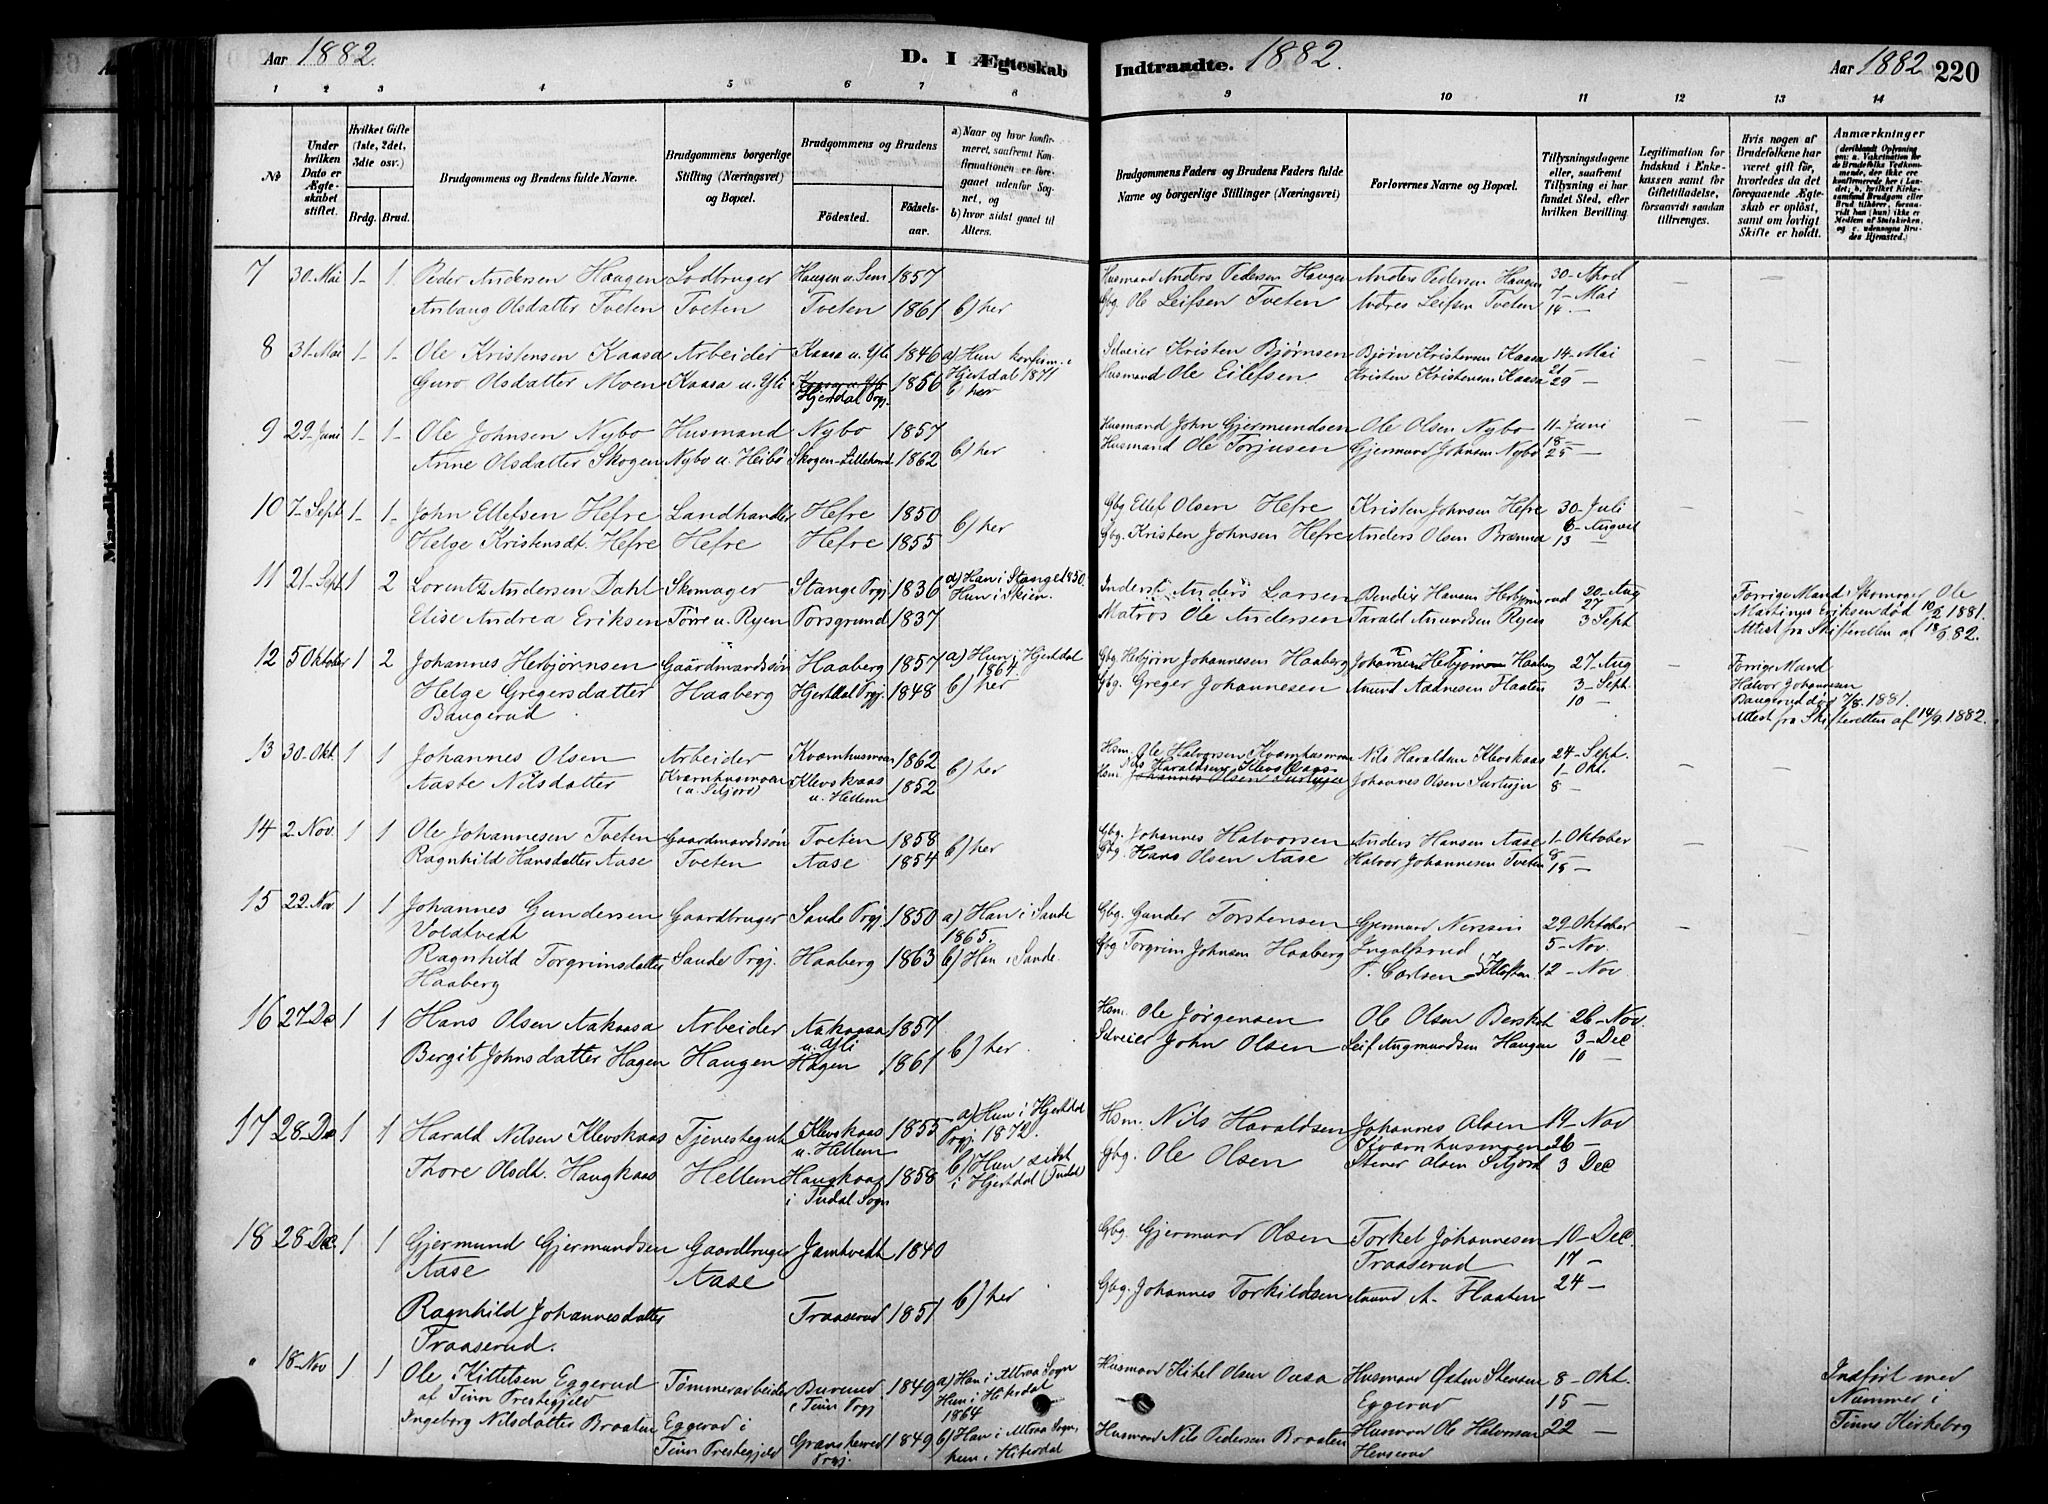 Aar 1882.
D. I Ægteskab
Indtraadte. 1882.
Aar 1882 220
1 2 3 4 5 6 7 8 9 10 11 12 13 14
No
Under hvilken Dato er Ægteskabet stiftet.
Hvilket Gifte (1ste, 2det, 3die osv.)
Brdg. Brud.
Brudgommens og Brudens fulde Navne.
Brudgommens borgerlige Stilling (Næringsvei) og Bopæl.
Brudgommens og Brudens
Fødested.
Fødselsaar.
a) Naar og hvor konfirmeret, saafremt Konfirmationen er foregaaet udenfor Sognet, og
b) hvor sidst gaaet til Alters.
Brudgommens Faders og Brudens Faders fulde Navne og borgerlige Stillinger (Næringsvei)
Forlovernes Navne og Bopæl.
Tillysningsdagene eller, saafremt Tillysning ei har fundet Sted, efter hvilken Bevilling.
Legitimation for Indskud i Enkekassen samt for Giftetilladelse, forsaavidt saadan tiltrænges.
Hvis nogen af Brudefolkene har været gift før, hvorledes da det foregaaende Ægteskab er opløst, samt om lovligt Skifte er holdt.
Anmærkninger
7 30-Mai 1- 1. Peder Andersen Haugen Lodbruger Haugen u. Sem 1857 Husmand Anders Pedersen Haugen Anders Pedersen Haugen 30-April
Anbaug Olsdatter Tveten Tveten Tveten 1861 b) her Gbg. Ole Leifsen Tveten Andres Leifsen Tveten 7-Mai
14 -
8 31-Mai 1- 1- Ole Kristensen Kaasa Arbeider Kaasa u. Yli 1846 a) Hun konfirm. i Hjertdal 1871 Selveier Kristen Bjørnsen Bjørn Kristensen Kaasa 14-Mai
Guro Olsdatter Moen Kaasa u. Yli Kaasa u. Yli Hjerdal Prgj. 1856 b her Husmand Ole Eilefsen Kristen Kristensen Kaasa 21 -
29 -
9 29-Juni 1- 1- Ole Johnsen Nybo Husmand Nybo 1857 Husmand John Gjermundsen Ole Olsen Nybo 11-Juni
Anne Olsdatter Skogen Nybo u. Heibø Skogen-Lilleherred 1862 b) her Husmand Ole Torjusen Gjermund Johnsen Nybo 18 -
25 -
10 7-Sept 1- 1- John Ellefsen Hefre Landhandler Hefre 1850 Gbg Ellef Olsen Hefre Kristen Johnsen Hefre 30-Juli
Helge Kristensdt. Hefre Hefre Hefre 1855 b) her Gbg. Kristen Johnsen Hefre Anders Olsen Brænna 6-August
13 -
11 21-Sept. 1 2 Lorentz Andersen Dahl Skomager Stange Prgj 1836 a) Han i Stange 1850. Anders Larsen 20-Aug Forrige Mand Skomager Ole
Elise Andrea Eriksen Porsgrund 1837 Hun i Skien. Matros Ole Andersen Tarald Amundsen Ryen 27 3 Sept Martinus Eriksen død 10/2 1881.
Attest fra Skifteretten af 18/6 82.
12 5 Oktober 1 2 Johannes Hebjørnsen Gaardmandssøn Haaberg 1857 a) Hun i Hjertdal 1864. Gbg Hebjørn Johannesen Haaberg Haaberg 27-Aug Forrige Mand
Helge Gregersdatter Haaberg Hjertdal Prgj. 1848 b) her Gbg. Greger Johannesen Amund Aadnesen Flaaten 3-Sept. Halvor Johannesen
Baugerud 10 - Baugerud død 7/8. 1881.
Attest fra Skifteretten af 14/9. 1882.
13 30-Okt. 1 1 Johannes Olsen Arbeider Kvarnhusmoen 1862 Hsm. Ole Halvorsen Kvarnhusmoen Nils Haraldsen Klevskaas 24-Sept.
Aaste Nilsdatter Kvarnhusmoen (u. Seljord) Klevskaas u. Hellem 1852 b) her Hsm. Nils Haraldsen Klevskaas Johannes Olsen 1-Okt.
8 -
14 2 Nov. 1 1 Ole Johannesen Tveten Gaardmandssøn Tveten 1858 Gbg. Johannes Halvorsen Anders Hansen Aase 1-Oktober
Ragnhild Hansdatter Aase Tveten Aase 1854 b) her Gbg. Hans Olsen Aase Halvor Johannesen Tveten 8
15 -
15 22-Nov. 1 1 Johannes Gundersen Gaardbruger Saude Prgj. 1850 a) Han i Saude 1865. Gbg. Gunder Torstensen Gjermund Nerisen 29 Oktober
Volatvedt Ingolfsrud 5-Nov.
Ragnhild Torgrimsdatter Saude Prgj. Haaberg 1863 b) Han i Saude. Gbg Torgrim Johnsen Haaberg T. Carlsen 12-Nov
Haaberg
16 27-Dec 1 1 Hans Olsen Aakaasa Arbeider Aakaasa u. Yli 1857 Hsm. Ole Jørgensen Ole Olsen Berskot 26-Nov.
Bergit Johnsdatter Hagen Haugen Hagen 1861 b) her Selveier John Olsen Leif Augmundsen Haugen 3-Dec
10 -
17 28-Dec 1 1 Harald Nilsen Klevskaas Tjenestegut Klevskaas u. Hellem 1855 a) Hun i Hjertdal Prgj. 1872. Hsm. Nils Haraldsen Johannes Olsen 19-Nov
Kvarnhusmoen 26 -
Thore Olsdt. Haugkaas Hellem Haugkaas i Tudal Sogn 1858 b) Hun sidst i Hjertdal (Tudal) Gbg. Ole Olsen Stener Olsen Seljord 3 Dec
18 28-Dec 1 1 Gjermund Gjermundsen Gaardbruger Jamtvedt 1840 Gbg. Gjermund Olsen Torkel Johannesen 10-Dec.
Aase Aase b) her Traaserud 17 -
Ragnhild Johannesdatter Traaserud 1851 Gbg. Johannes Torkildsen Amund A. Flaaten 24 -
Traaserud.
" 18-Nov 1 1 Ole Kittelsen Eggerud Tømmerarbeider Burund i Tinn Prgj 1849 a) Han i Attraa Sogn Husmand Kitel Olsen Husmand Østen Stensen 8-Okt. Indført med
af Tinn Prestegjeld Hun i Hiterdal 1864 Eggerud 15 - Nummer i
Ingeborg Nilsdatter Braaten Eggerud i Tinn Prestegjeld Gransherred Prgj. 1849 b) Han i Attraa Sogn, hun i Hiterdal Husmand Nils Pedersen Braaten Husmand Ole Halvorsen 22 - Tinns Kirkebog
Henserud